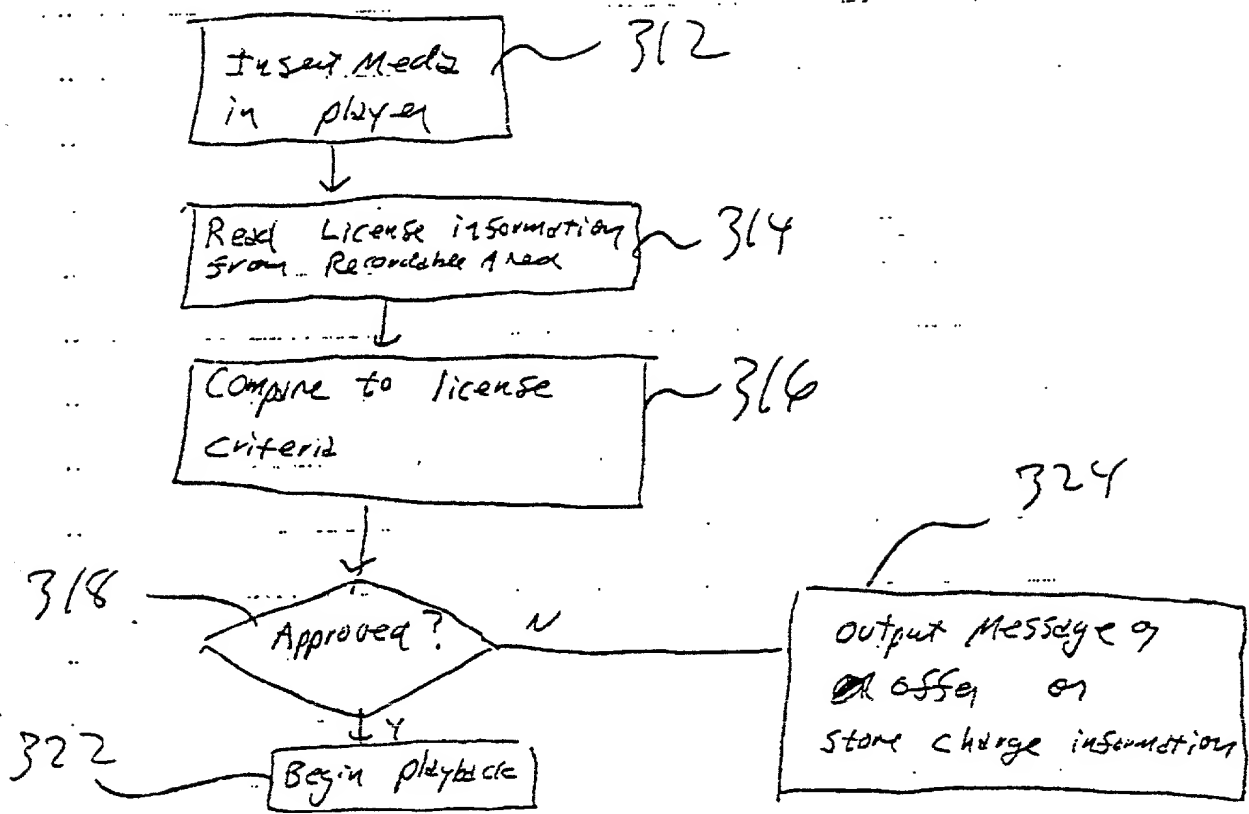 Insert Media
in player
312
Read License information
from Recordable Area
314
Compare to license
criteria
316
318
Approved?
N
324
output Message or
offer or
store charge information
Y
322
Begin playback